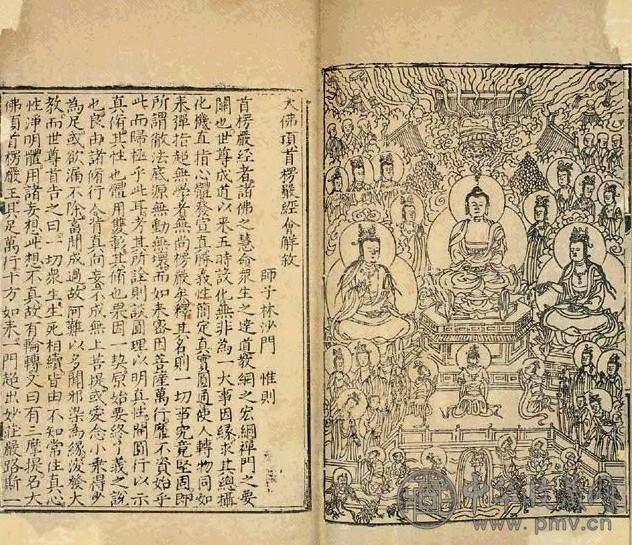 大佛頂首楞嚴經會解敘
師子林沙門 惟則
首楞嚴經者諸佛之慧命衆生之達道教網之宏綱禪門之要
關也世尊成道以来五時設化無非為一大事因緣求其總攝
化機直指心體發宣真勝義性簡定真實圓通使人轉物同如
来彈指超無學者無尚楞嚴矣釋其名則一切事究竟堅固即
所謂徹法底源無動無壞而如来密因菩薩萬行靡不資始乎
此而歸極乎此耳考其所詮則談圓理以明真性開圓行以示
真脩其性也體用雙彰其脩也果因一契原始要終了義之說
也良由諸脩行人背真向妄不成無上菩提或安念小乗得少
為足或欲漏不除畜聞成過故阿難以多聞邪染為緣浚發大
教而世尊首告之曰一切衆生生死相續皆由不知常住真心
性淨明體用諸妄想此想不真故有輪轉又曰有三摩提名大
佛頂首楞嚴王具足萬行十方如来一門超出妙莊嚴路斯一
www.pmv.cn